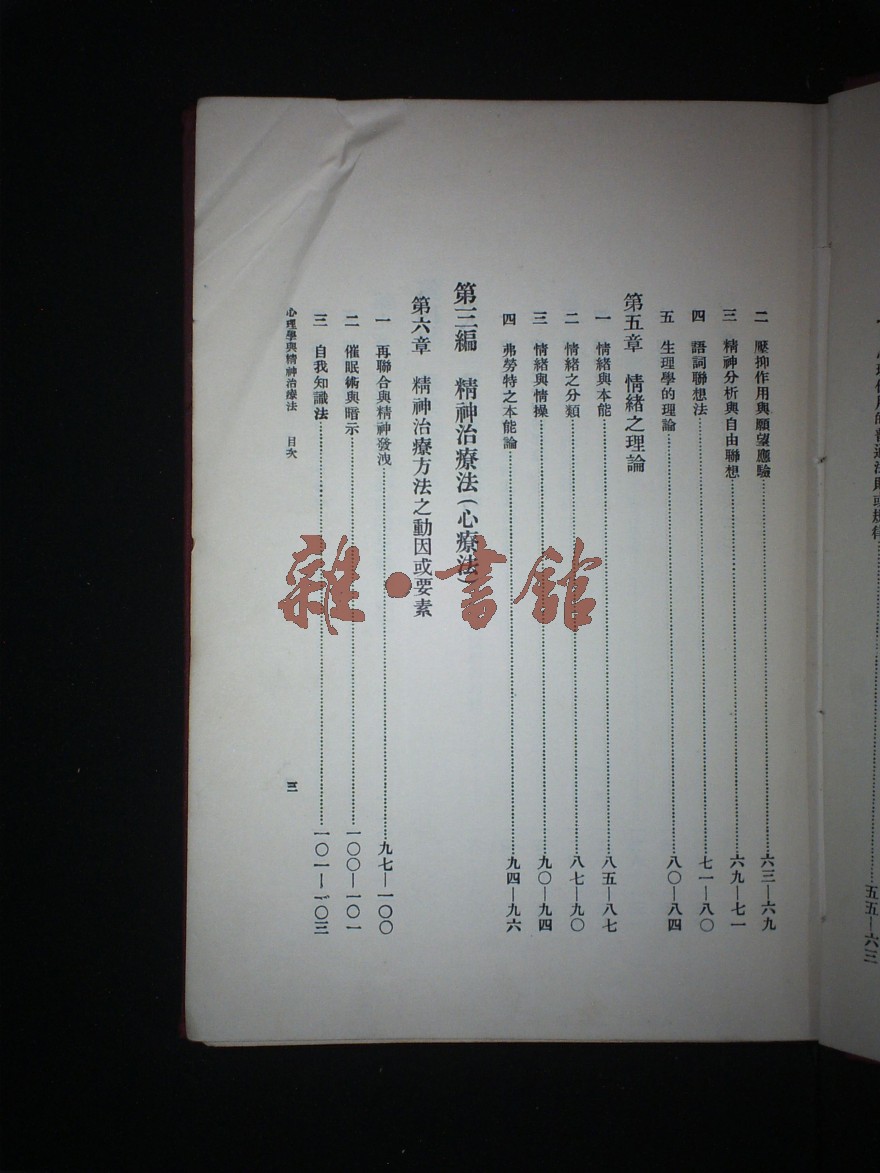 一 心理作用的普通法則或規律……五五—六三
二 壓抑作用與願望應驗……六三—六九
三 精神分析與自由聯想……六九—七一
四 語詞聯想法……七一—八〇
五 生理學的理論……八〇—八四
第五章 情緒之理論
一 情緒與本能……八五—八七
二 情緒之分類……八七—九〇
三 情緒與情操……九〇—九四
四 弗勞特之本能論……九四—九六
第三編 精神治療法(心療法)
第六章 精神治療方法之動因或要素
一 再聯合與精神發洩……九七—一〇〇
二 催眠術與暗示……一〇〇—一〇一
三 自我知識法……一〇一—一〇三
心理學與精神治療法 目次
三
雜·書館